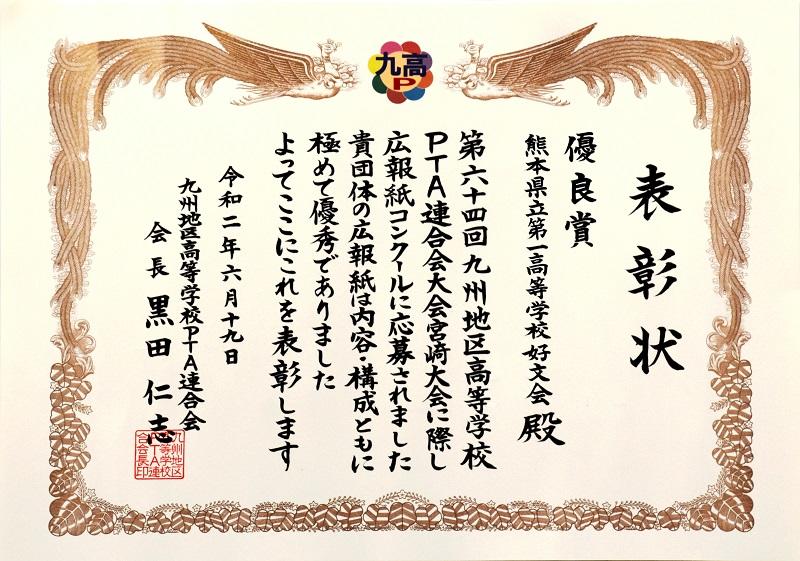 九高
P
表彰状
優良賞
熊本県立第一高等学校好文会 殿
第六十四回九州地区高等学校
PTA連合会大会宮崎大会に際し
広報紙コンクールに応募されました
貴団体の広報紙は内容・構成ともに
極めて優秀でありました
よってここにこれを表彰します
令和二年六月十九日
九州地区高等学校PTA連合会
会長 黒田仁志
九州地区
高等学校
PTA連
合会会長印